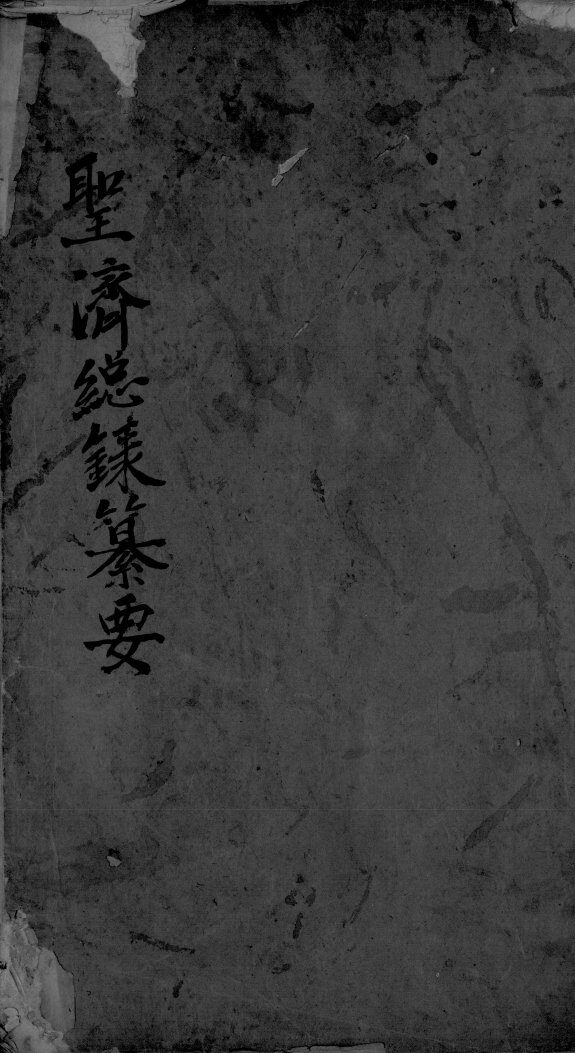 聖濟総錄纂要